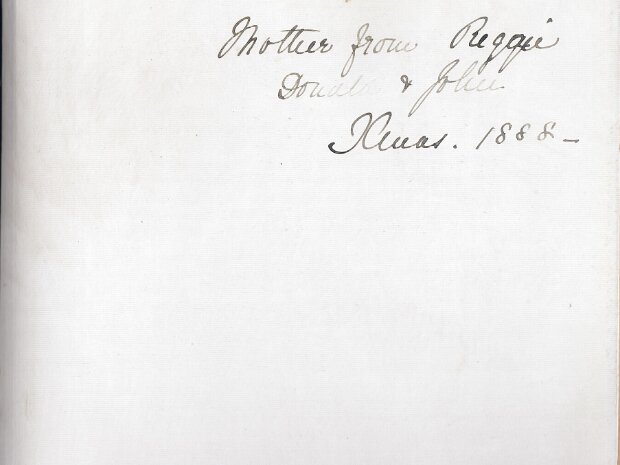 Mother from Reggie
Donald & John
Xmas. 1888–